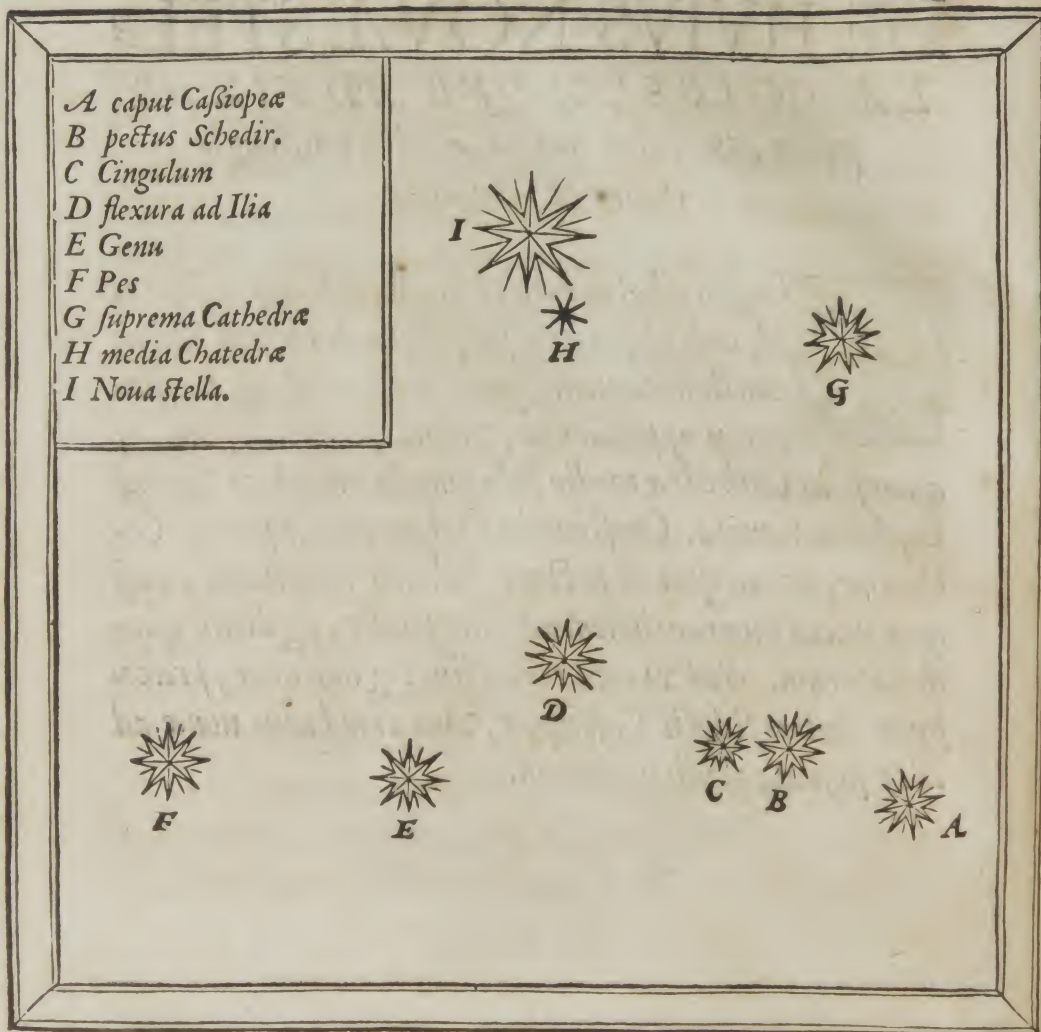 A caput Caſsiopeæ
B pectus Schedir.
C Cingulum
D flexura ad Ilia
E Genu
F Pes
G ſuprema Cathedræ
H media Chatedræ
I Noua ſtella.
I
H
G
D
C
B
F
E
A